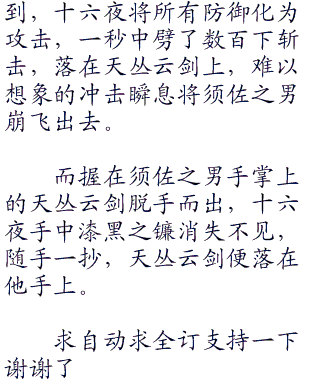 到，十六夜将所有防御化为
攻击，一秒中劈了数百下斩
击，落在天丛云剑上，难以
想象的冲击瞬息将须佐之男
崩飞出去。
而握在须佐之男手掌上
的天丛云剑脱手而出，十六
夜手中漆黑之镰消失不见，
随手一抄，天丛云剑便落在
他手上。
求自动求全订支持一下
谢谢了